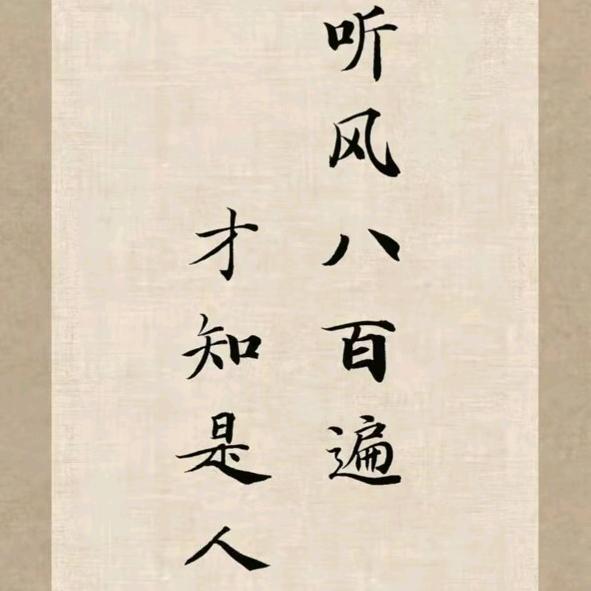 听风八百遍
才知是人